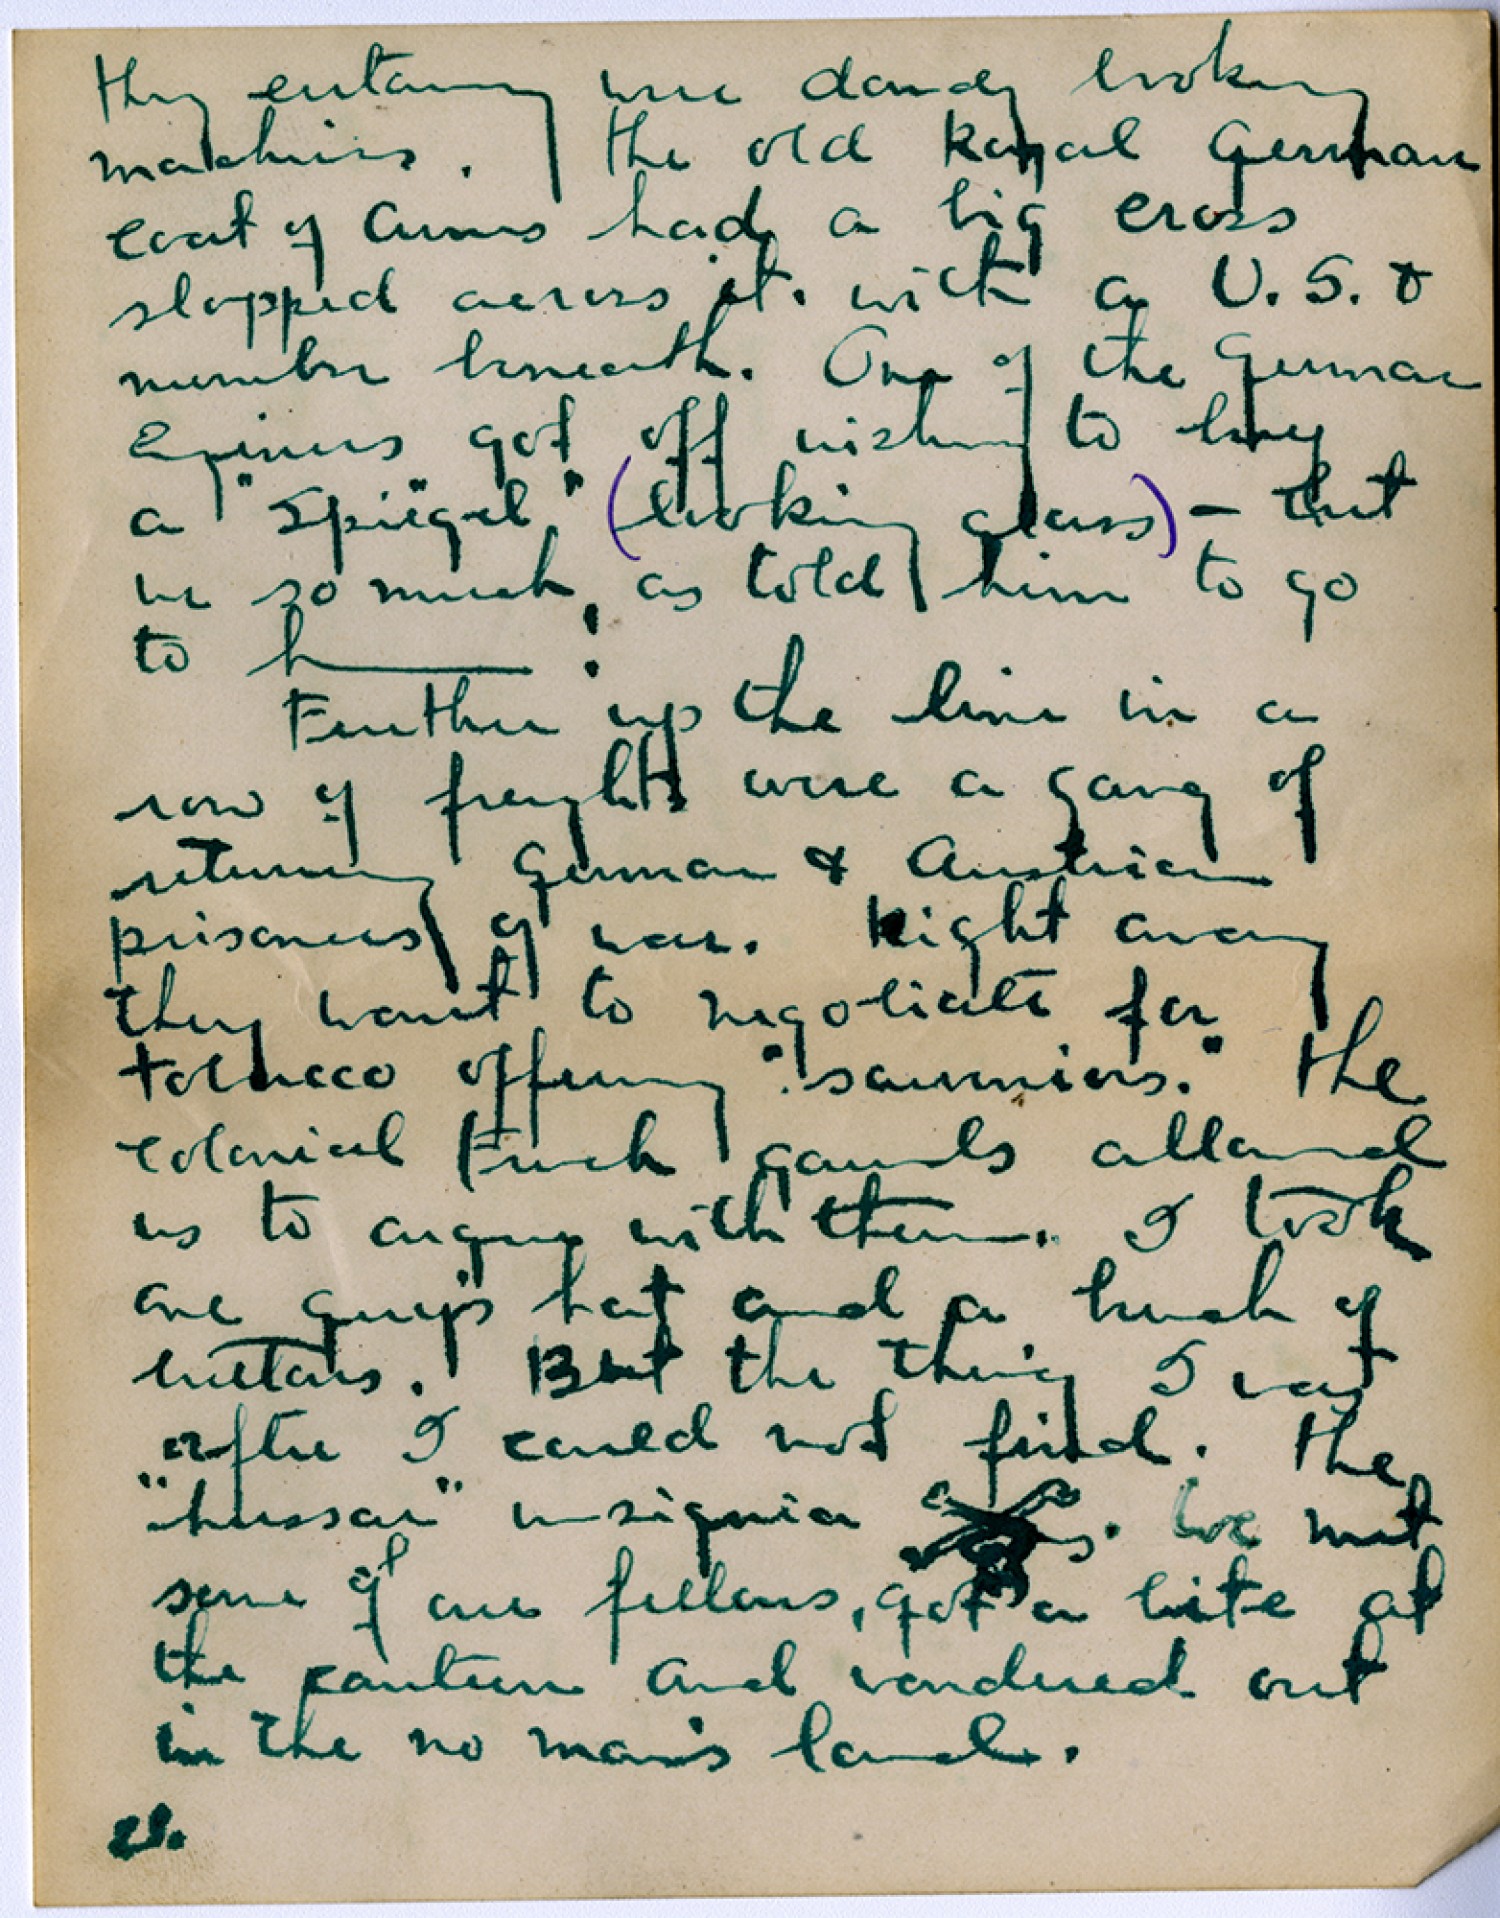 they certainly were dandy looking
machines. The old Royal German
coat of Arms had a big cross
slapped across it. with a U.S. &
number beneath. One of the German
Enginers got off wishing to buy
a "Spiegel" (looking glass) - but
we so much, as told him to go
to h——— :
Further up the line in a
row of freights were a gang of
returning German & Austrian
prisoners of war. Right away
they want to negotiate for
tobacco offering "souveniers." The
colonial French gaurds allowed
us to argue with them. I took
one guy's hat and a bunch of
buttons. But the thing I was
after I could not find. The
"hussar" insignia . We met
some of our fellows, got a bite at
the canteen and wandered out
in the no man's land.
28.